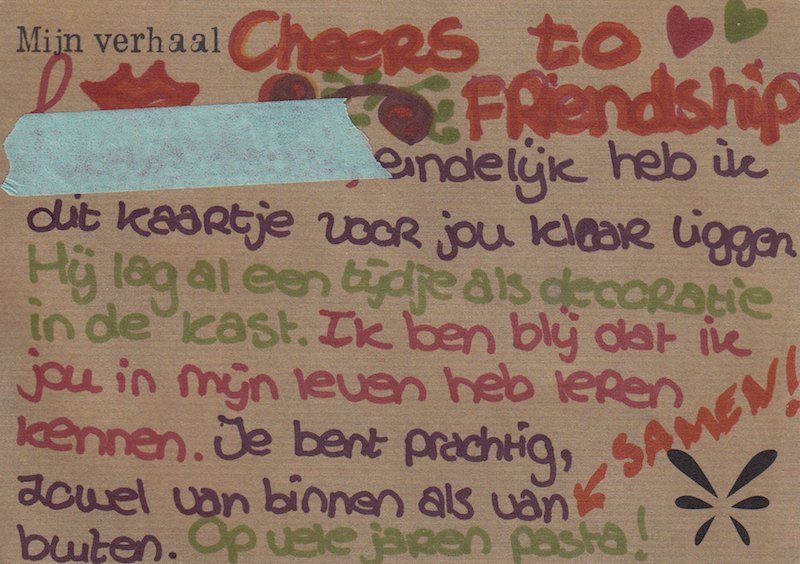 Mijn verhaal Cheers to
Friendship
, eindelijk heb ik
dit kaartje voor jou klaar liggen
Hij lag al een tijdje als decoratie
in de kast. Ik ben blij dat ik
jou in mijn leven heb leren
kennen. Je bent prachtig,
zowel van binnen als van
buiten. Op vele jaren pasta!
SAMEN!